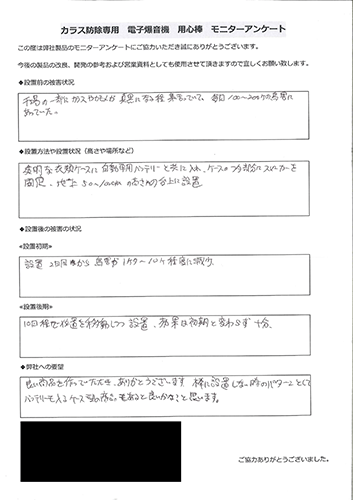 カラス防除専用 電子爆音機 用心棒 モニターアンケート
この度は弊社製品のモニターアンケートにご協力いただき誠にありがとうございます。
今後の製品の改良、開発の参考および営業資料としても使用させて頂きますので宜しくお願い致します。
◆設置前の被害状況
一部にカラスやカモメが 真黒になる程 集まっていて、毎日 100〜200ヶの鳥害に
あっていた。
◆設置方法や設置状況（高さや場所など）
透明な衣類ケースに自動車用バッテリーと共に入れ、ケースの にスピーカーを
固定、地上 50〜100cm の高さの台上に設置
◆設置後の被害の状況
≪設置初期≫
設置 2日目から 鳥害が 1ケ〜10ケ程度に減少。
≪設置後期≫
10日程で位置を移動しつつ 設置、効果は初期と変わらず十分。
◆弊社への要望
良い商品を作っていただき、ありがとうございます 棒に設置しない時のパターンとして
バッテリーも入るケース 商品 もあると良いかなと思います。
ご協力ありがとうございました。